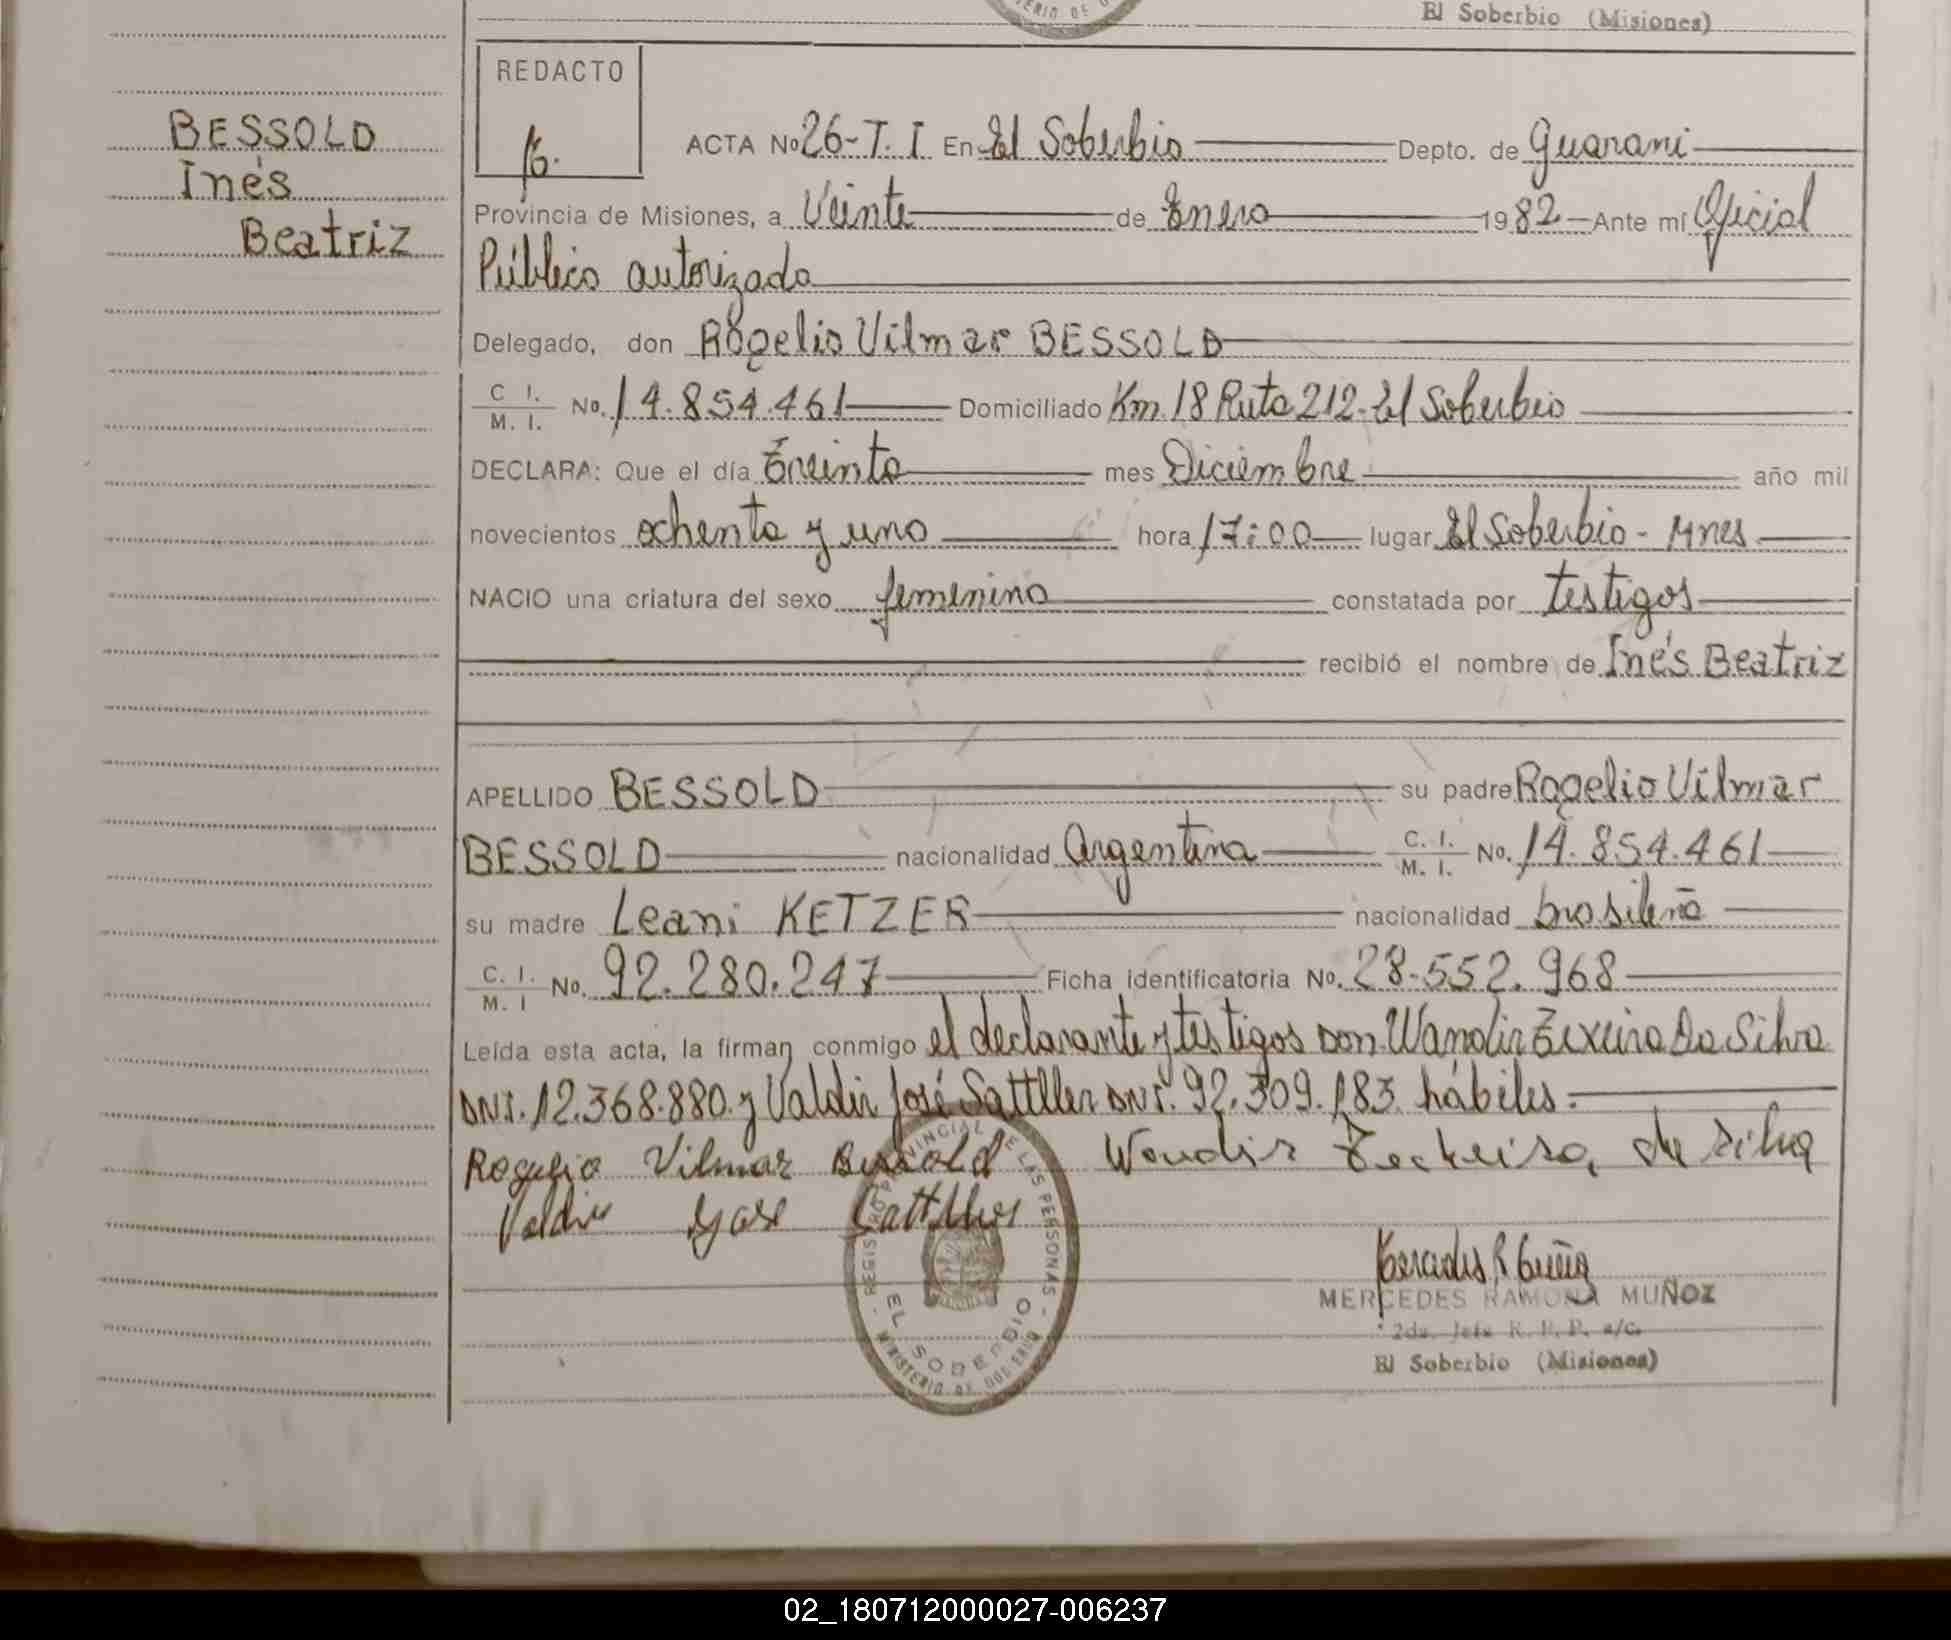 El Soberbio (Misiones)
REDACTO
BESSOLD
Inés
Beatriz
ACTA No 26-T.I En El Soberbio Depto. de Guarani
Provincia de Misiones, a Veinte de Enero 1982 Ante mí Oficial
Público autorizado
Delegado, don Rogelio Vilmar BESSOLD
C. I. / M. I. No. 14.854.461 Domiciliado Km 18 Ruta 212-El Soberbio
DECLARA: Que el día Treinta mes Diciembre año mil
novecientos ochenta y uno hora 17:00 lugar El Soberbio - Mnes
NACIO una criatura del sexo femenino constatada por testigos
recibió el nombre de Inés Beatriz
APELLIDO BESSOLD su padre Rogelio Vilmar
BESSOLD nacionalidad Argentina C. I. / M. I. No. 14.854.461
su madre Leani KETZER nacionalidad brasileña
C. I. / M. I No. 92.280.247 Ficha identificatoria No. 28.552.968
Leída esta acta, la firman conmigo el declarante y testigos Don Wandir Teixeira Da Silva
DNI. 12.368.880 y Valdir José Sattller DNI. 92.309.183 hábiles.
Rogelio Vilmar Bessold Wandir Teckeira da silva
Valdir Jose Sattller
REGISTRO PROVINCIAL DE LAS PERSONAS
EL SOBERBIO
MINISTERIO DE GOBIERNO
MERCEDES RAMONA MUÑOZ
2da. Jefe R. P. P. a/c.
El Soberbio (Misiones)
02_180712000027-006237